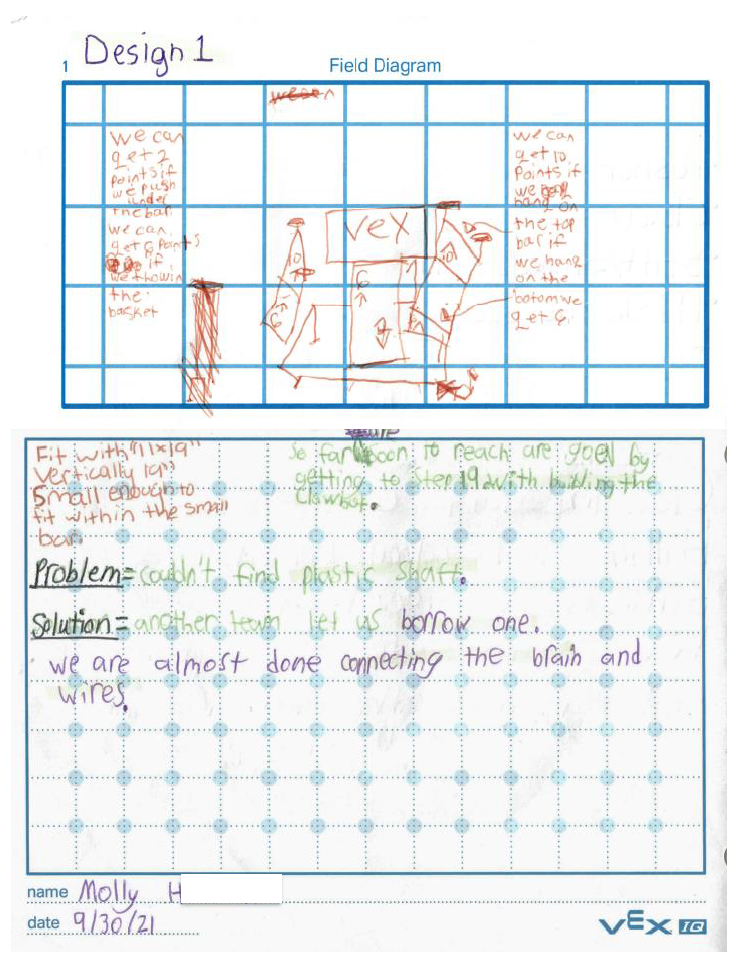 Design 1
1 Field Diagram
we can
get 2
points if
we push
under
the bar.
we can
get 6 points
if
we thowin
the
basket
vex
10
6
10
6
we can
get 10
Points if
we
hang on
the top
bar if
we hang
on the
botom we
get 6.
Fit with "11x19"
Vertically 19"
Small enough to
fit within the small
bar.
So far soon to reach are goel by
getting to Step 19 with building the
Clawbot.
Problem= couldn't find plastic shaft.
Solution= another team let us borrow one.
we are almost done connecting the brain and
wires.
name Molly H
date 9/30/21
VEX IQ